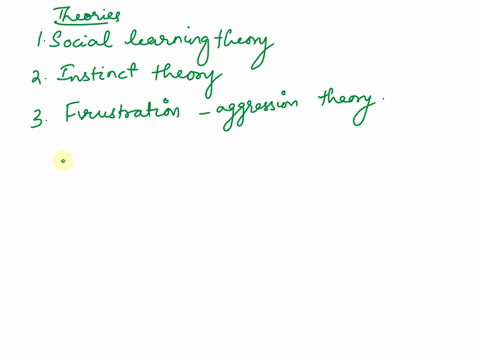 Theories
1. Social learning theory
2. Instinct theory
3. Frustration - aggression theory.